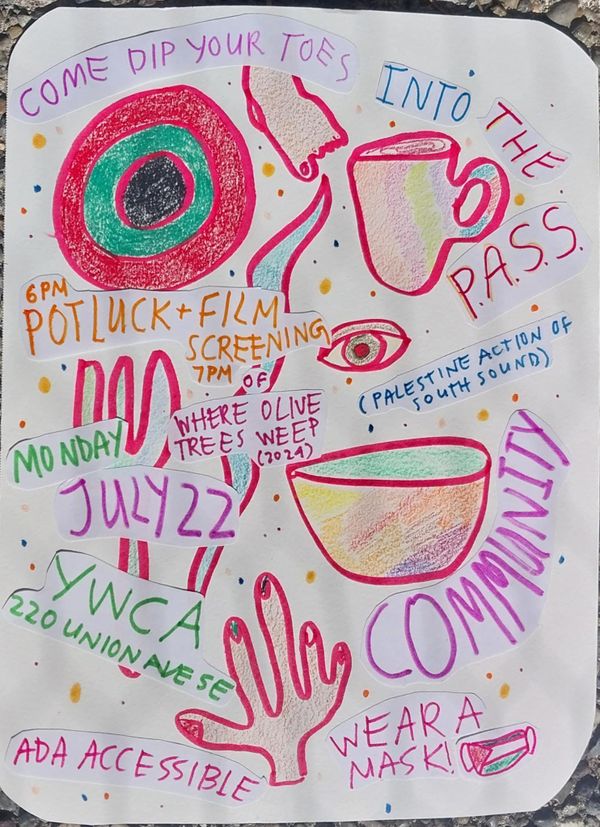 COME DIP YOUR TOES
INTO
THE
P.A.S.S.
(PALESTINE ACTION OF
SOUTH SOUND)
COMMUNITY
6PM
POTLUCK + FILM
SCREENING
7PM
OF
WHERE OLIVE
TREES WEEP
(2024)
MONDAY
JULY 22
YWCA
220 UNION AVE SE
ADA ACCESSIBLE
WEAR A
MASK!